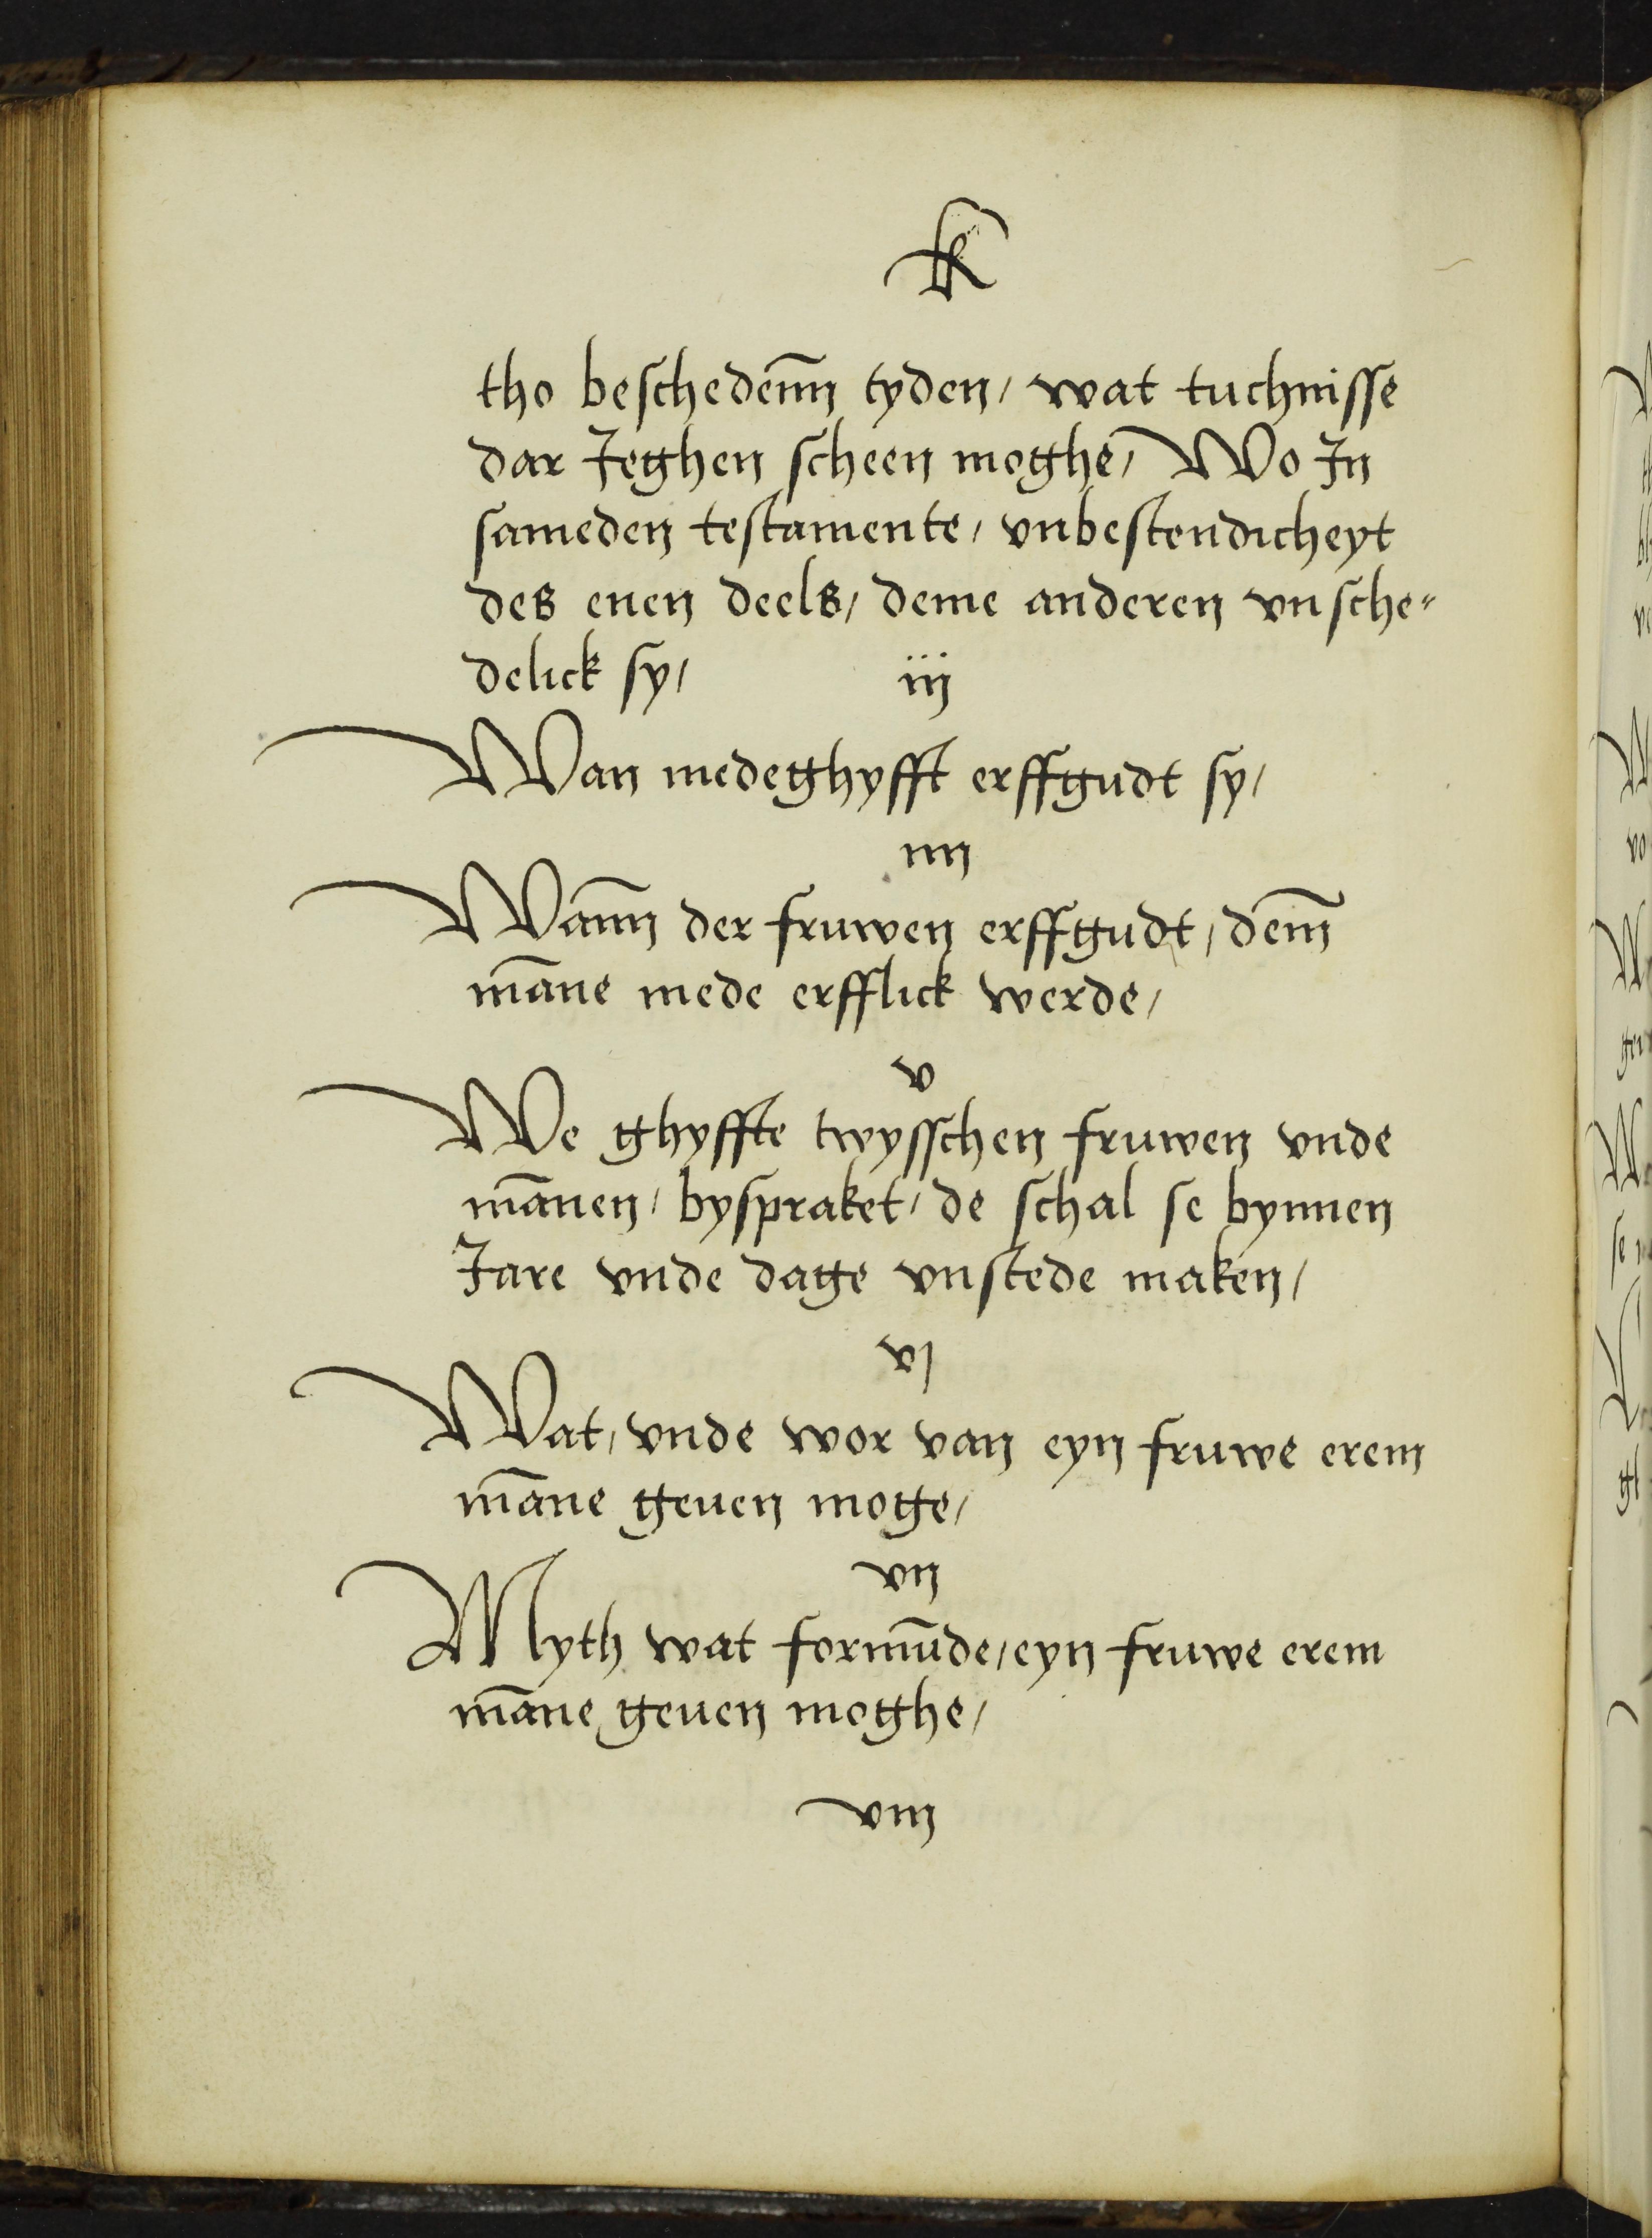 K
tho beschedenn̄ tyden / wat tuchnisse
dar Jeghen scheen moghe / Wo Jn
sameden testamente / vnbestendicheyt
des enen deels / deme anderen vnsche⸗
delick sy /
iij
Wan medeghyfft erffgudt sy /
iiij
Wann̄ der fruwen erffgudt / dem̄
māne mede erfflick werde /
v
We ghyffte twysschen fruwen vnde
mānen / byspraket / de schal se bynnen
Jare vnde dage vnstede maken /
vj
Wat / vnde wor van eyn fruwe erem
māne geuen moge /
vij
Myth wat formūde / eyn fruwe erem
māne geuen moghe /
viij